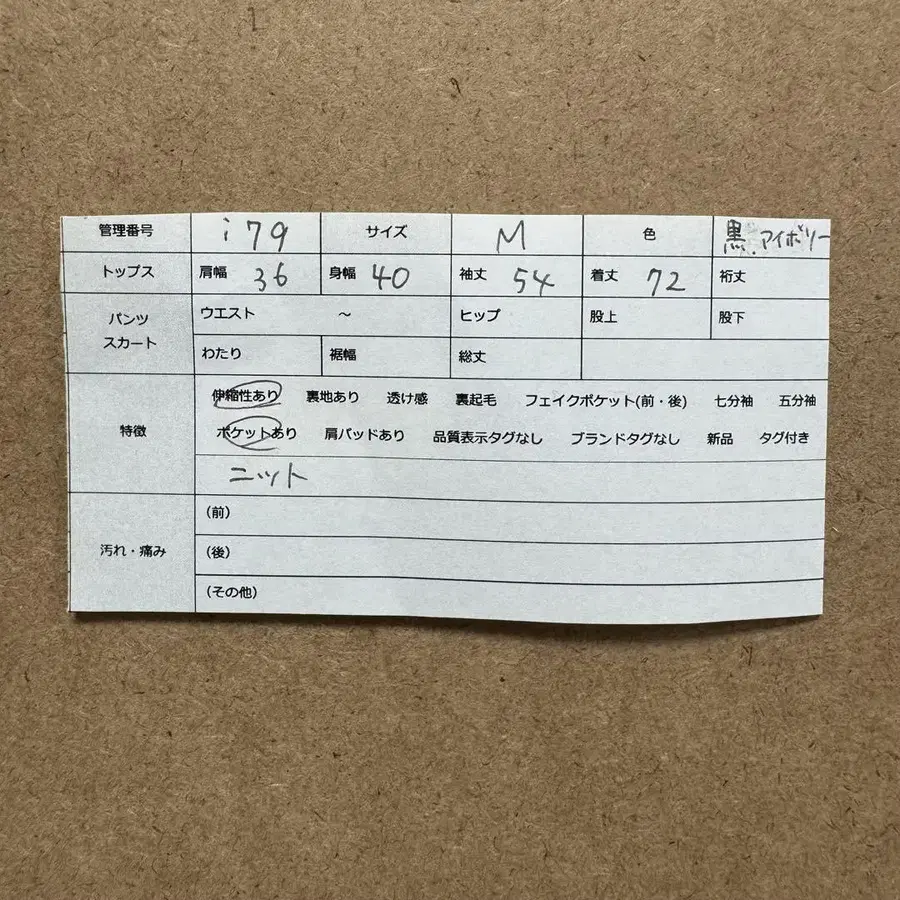 管理番号 i79 サイズ M 色 黒、アイボリー
トップス 肩幅 36 身幅 40 袖丈 54 着丈 72 裄丈
パンツ スカート ウエスト ～ ヒップ 股上 股下
わたり 裾幅 総丈
特徴 伸縮性あり 裏地あり 透け感 裏起毛 フェイクポケット(前・後) 七分袖 五分袖
ポケットあり 肩パッドあり 品質表示タグなし ブランドタグなし 新品 タグ付き
ニット
汚れ・痛み (前)
(後)
(その他)